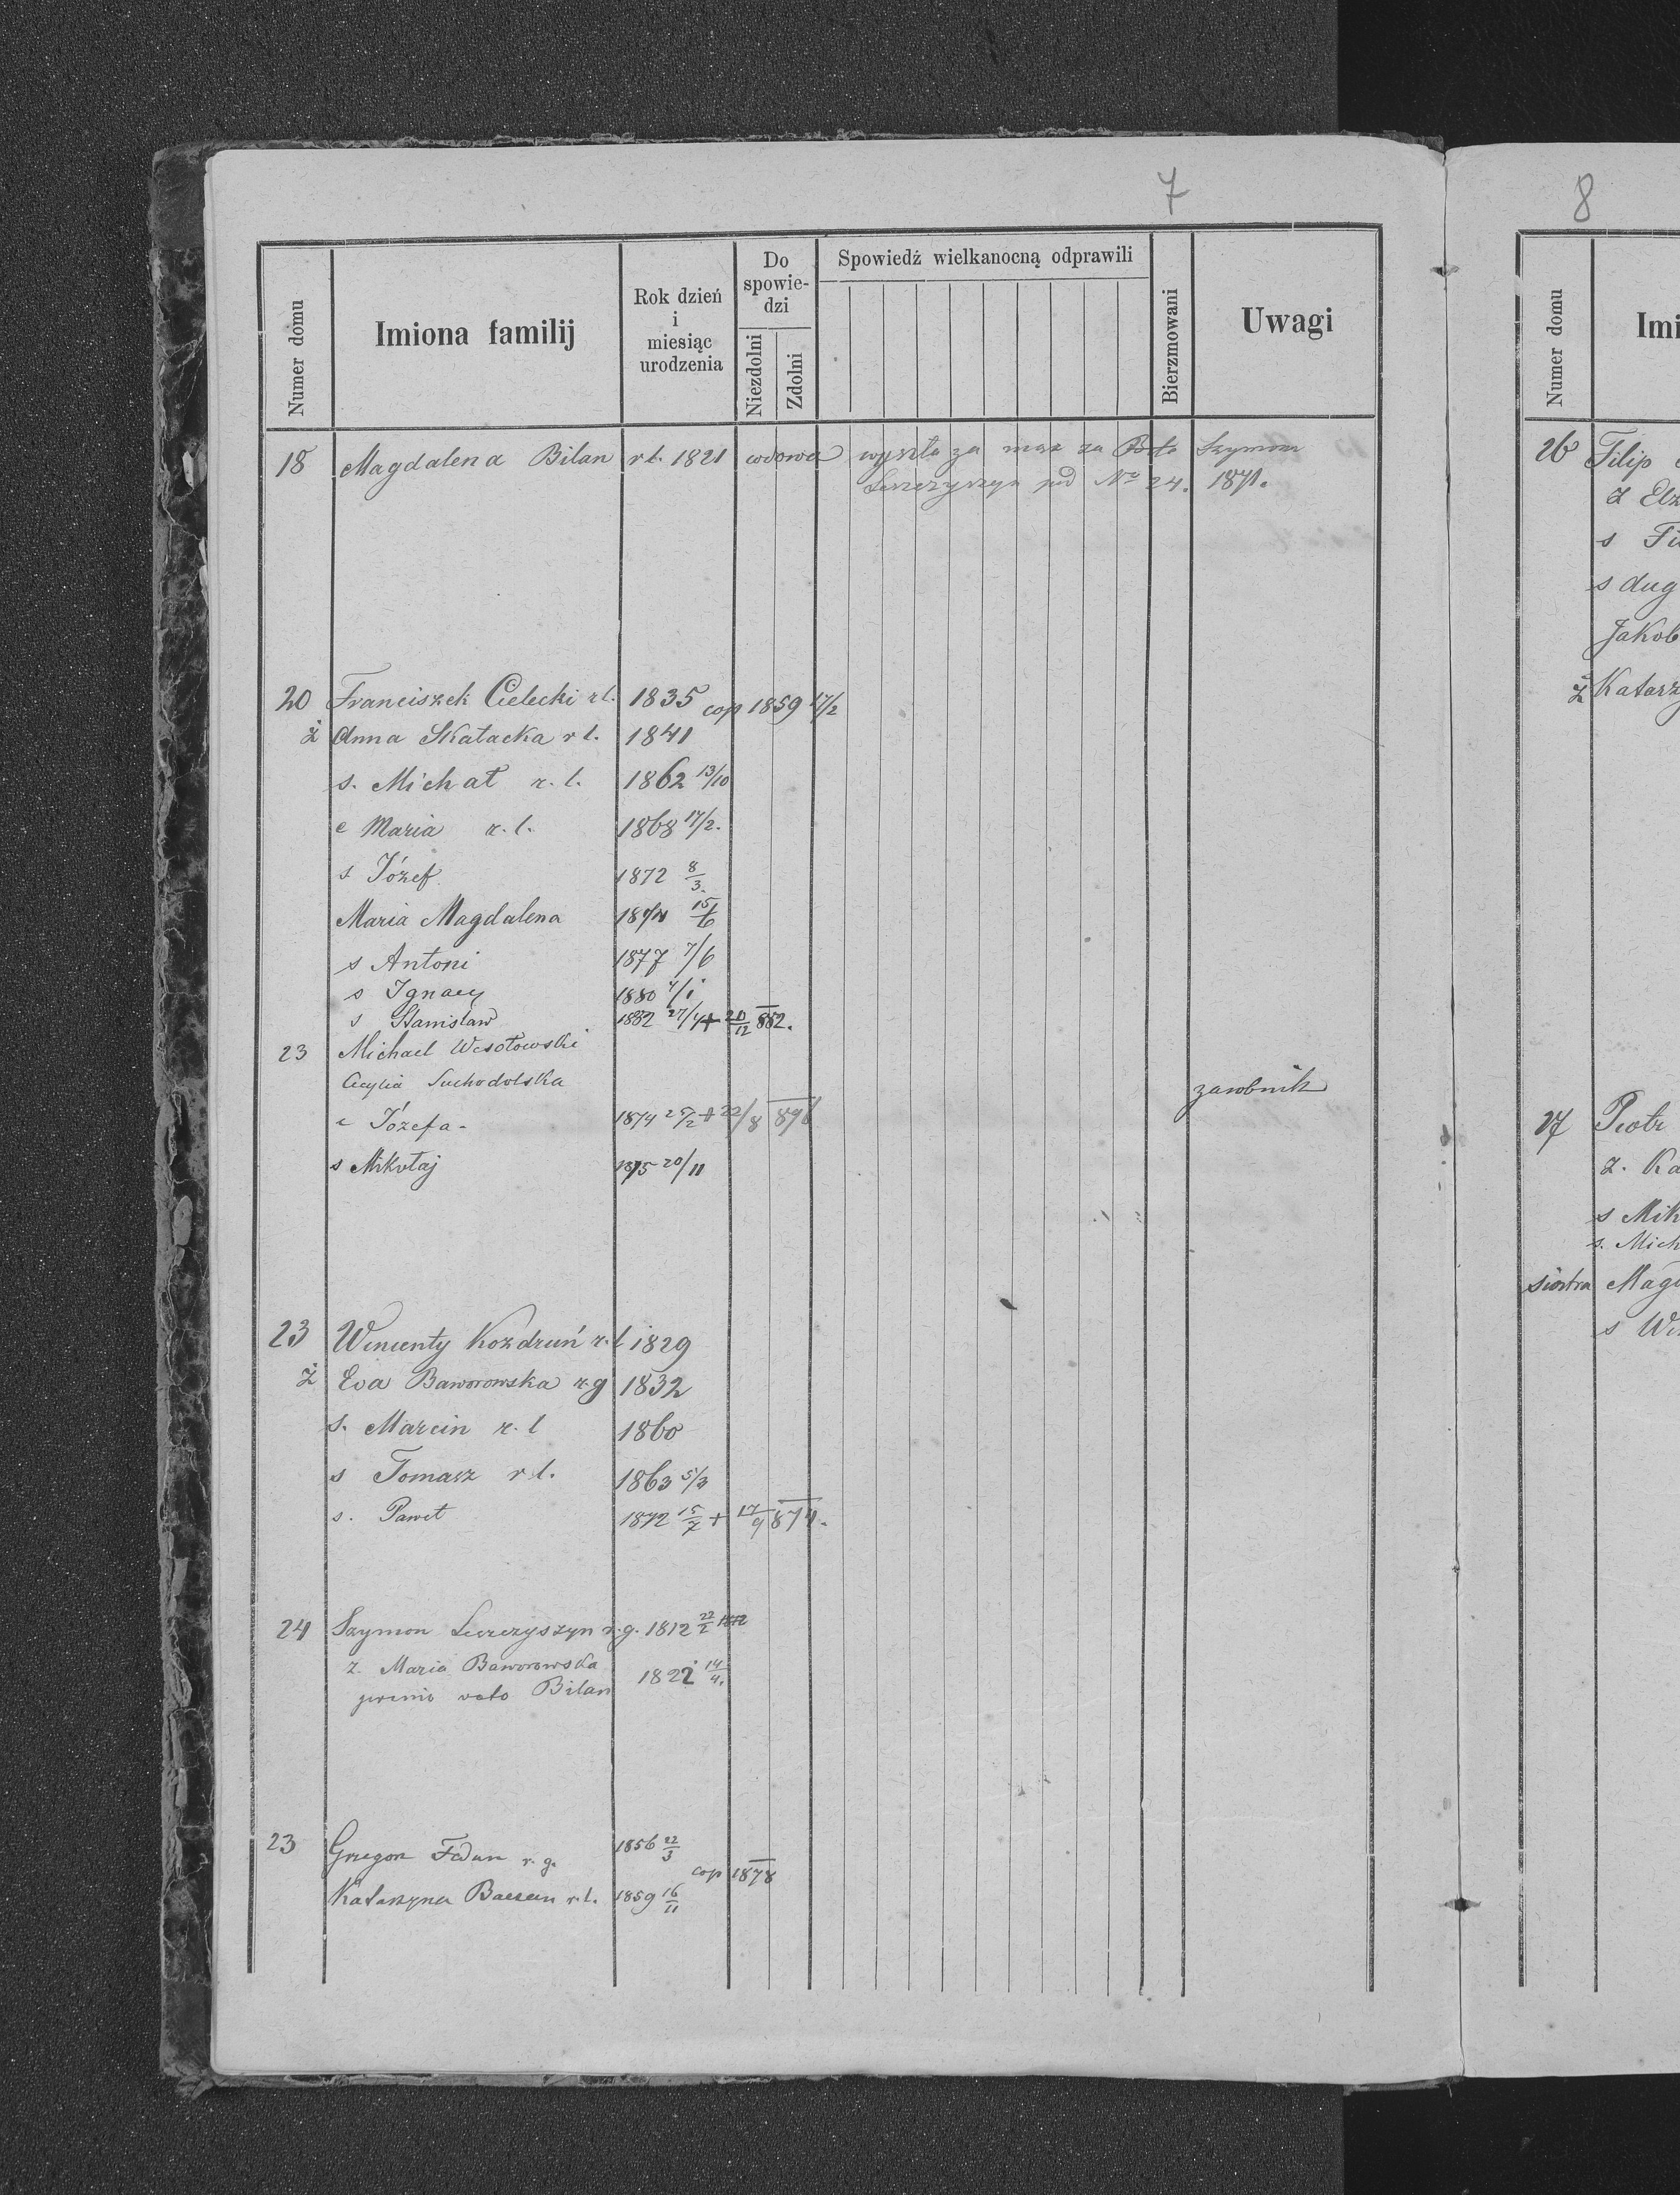 7
Numer domu
Imiona familij
Rok dzień
i
miesiąc
urodzenia
Do
spowie-
dzi
Niezdolni
Zdolni
Spowiedź wielkanocną odprawili
Bierzmowani
Uwagi
18 Magdalena Bilan r l. 1821 wdowa wyszła za maż za Szymon
pod No 24. 1871.
20 Franciszek Cielecki r l. 1835 cop 1859 17/2
ż Anna Skałacka r l. 1841
s. Michał r. l. 1862 13/10
c Maria r. l. 1868 17/2.
s Józef 1872 8/3.
Maria Magdalena 1874 15/6
s Antoni 1877 7/6
s Ignacy 1880
s Stanisław 1882 27/4 + 20/12 882.
23 Michael Wesołowski
Cecylia Suchodolska
zarobnik
c Józefa - 1874 + 22/8
s Mikołaj 1875 20/11
23 Wincenty Kozdruń r. l 1829
ż Eva Baworowska r. g 1832
s. Marcin r. l 1860
s Tomasz r l. 1863 5/3
s. Paweł 1872 15/7 + 17/9 874.
24 Szymon r. g. 1812 22/2
ż. Maria Baworowska 14/4.
primo voto Bilan
23 Gregor Fedun r. g. 1856 22/3
cop 1878
Katarzyna r. l. 1859 16/11
8
Numer domu
Imi
26 Filip
s
s
Jakob
ż Katarz
27 Piotr
ż. Ka
s Mik
s. Mich
siostra Magd
s